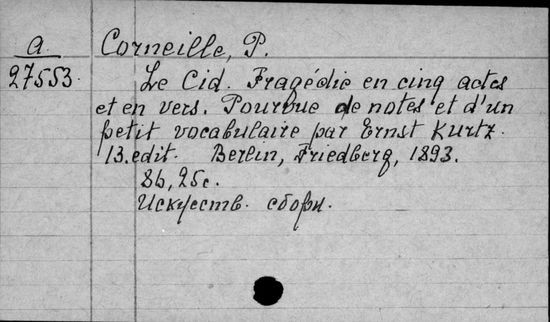 a
Corneille, P.
27553.
Le Cid. Fragédie en cinq actes
et en vers. Pourvue de notes et d'un
petit vocabulaire par Ernst Kurtz.
13. edit. Berlin, Friedberg, 1893.
8b, 25c.
Искусств. сборн.